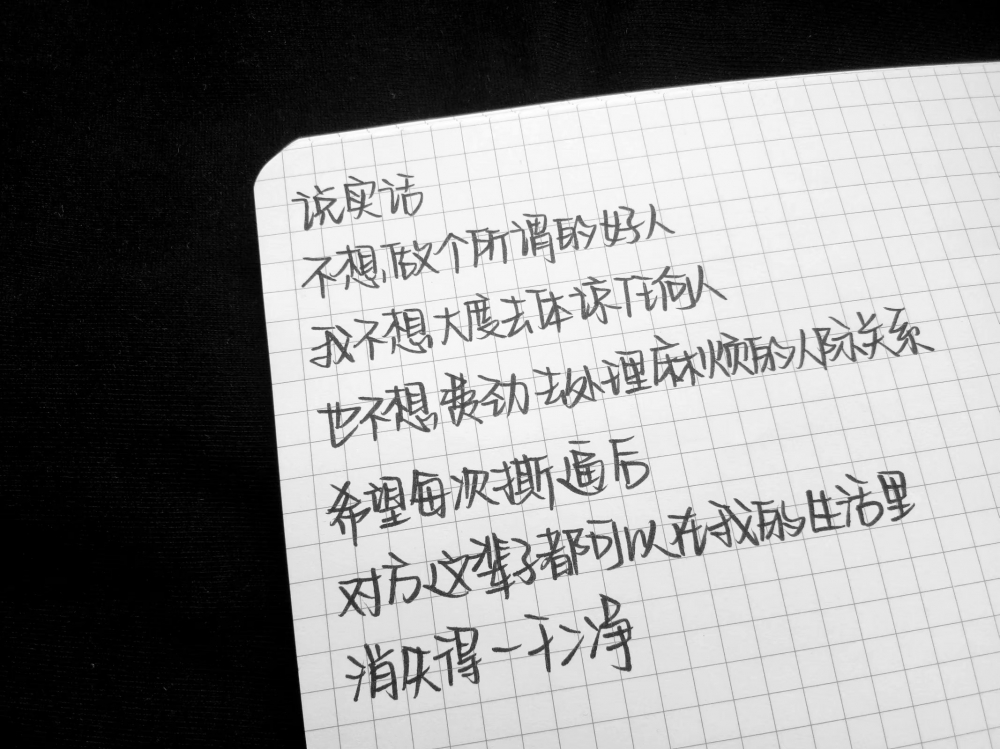 说实话
不想做个所谓的好人
我不想大度去体谅任何人
也不想费劲去处理麻烦的人际关系
希望每次撕逼后
对方这辈子都可以在我的生活里
消失得一干净